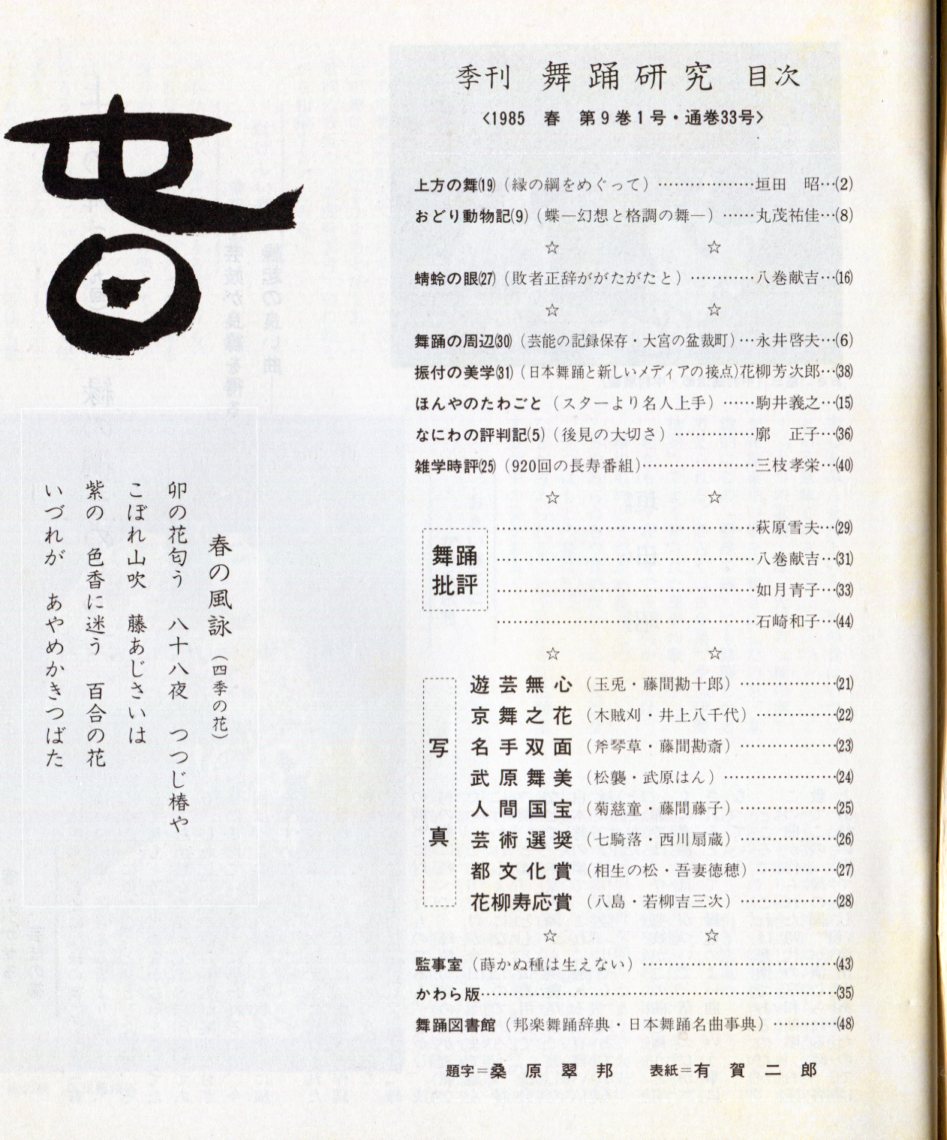 季刊 舞踊研究 目次
<1985 春 第9巻1号・通巻33号>
上方の舞(19)(縁の綱をめぐって)………………垣田 昭…(2)
おどり動物記(9)(蝶―幻想と格調の舞―)……丸茂祐佳…(8)
☆ ☆
蜻蛉の眼(27)(敗者正辞ががたがたと)…………八巻献吉…(16)
☆ ☆
舞踊の周辺(30)(芸能の記録保存・大宮の盆裁町)…永井啓夫…(6)
振付の美学(31)(日本舞踊と新しいメディアの接点)花柳芳次郎…(38)
ほんやのたわごと(スターより名人上手)……駒井義之…(15)
なにわの評判記(5)(後見の大切さ)……………廓 正子…(36)
雑学時評(25)(920回の長寿番組)………………三枝孝栄…(40)
☆ ☆
舞踊批評
………………………………………萩原雪夫…(29)
………………………………………八巻献吉…(31)
………………………………………如月青子…(33)
………………………………………石崎和子…(44)
☆ ☆
写真
遊芸無心(玉兎・藤間勘十郎)………………(21)
京舞之花(木賊刈・井上八千代)……………(22)
名手双面(斧琴草・藤間勘斎)………………(23)
武原舞美(松襲・武原はん)…………………(24)
人間国宝(菊慈童・藤間藤子)………………(25)
芸術選奨(七騎落・西川扇蔵)………………(26)
都文化賞(相生の松・吾妻徳穂)……………(27)
花柳寿応賞(八島・若柳吉三次)……………(28)
☆ ☆
監事室(蒔かぬ種は生えない)……………………………(43)
かわら版……………………………………………………(35)
舞踊図書館(邦楽舞踊辞典・日本舞踊名曲事典)…………(48)
題字=桑原翠邦 表紙=有賀二郎
春
春の風詠(四季の花)
卯の花匂う 八十八夜 つつじ椿や
こぼれ山吹 藤あじさいは
紫の 色香に迷う 百合の花
いづれが あやめかきつばた